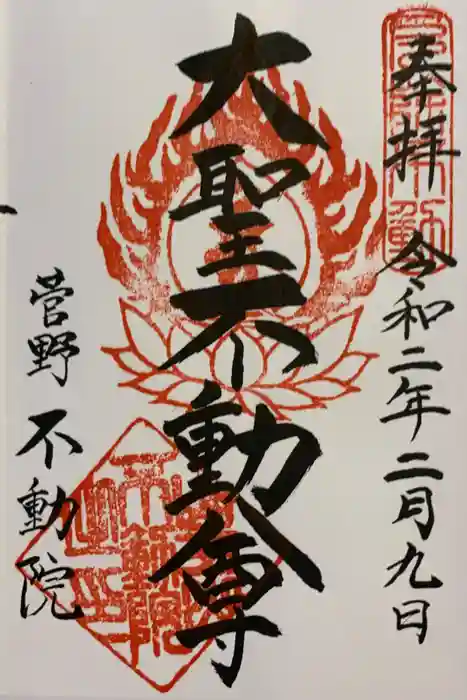 奉拝 令和二年二月九日
大聖不動尊
菅野 不動院